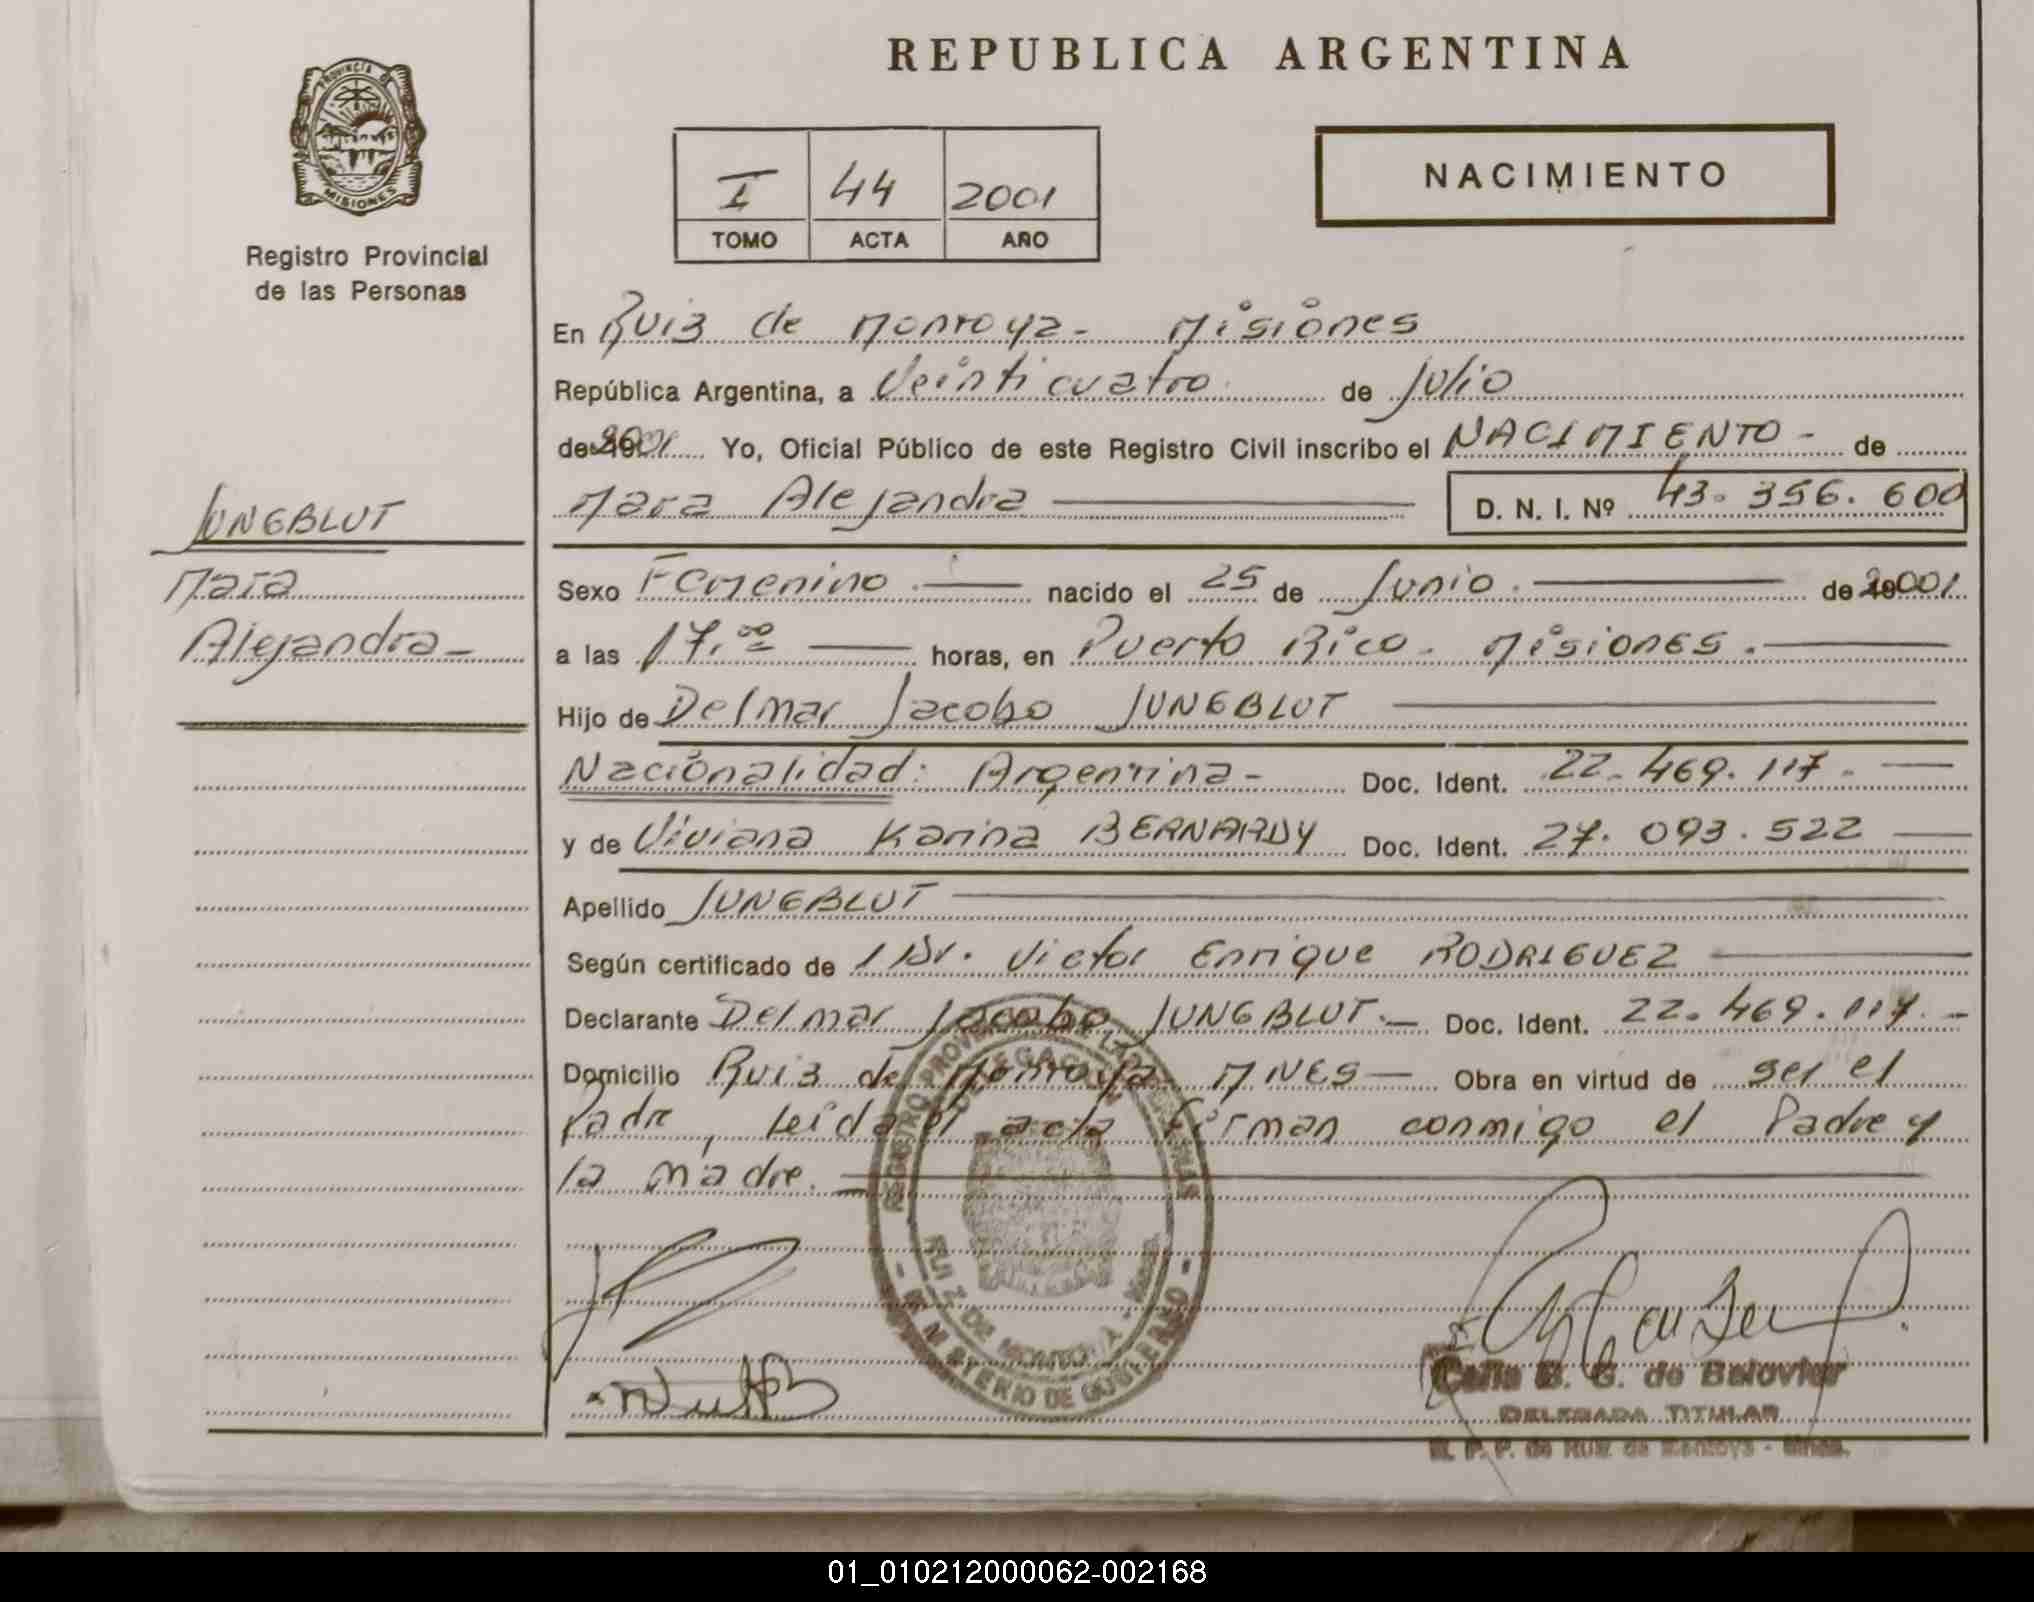 REPUBLICA ARGENTINA
PROVINCIA DE
MISIONES
Registro Provincial
de las Personas
I 44 2001
TOMO ACTA AÑO
NACIMIENTO
En Ruiz de Montoya - Misiones
República Argentina, a Veinticuatro de Julio
de 2001 Yo, Oficial Público de este Registro Civil inscribo el NACIMIENTO - de
Mara Alejandra D. N. I. Nº 43. 356. 600
JUNGBLUT
Mara
Alejandra -
Sexo Femenino. nacido el 25 de Junio. de 2001.
a las 17.00 horas, en Puerto Rico. Misiones.
Hijo de Delmar Jacobo JUNGBLUT
Nacionalidad: Argentina - Doc. Ident. 22. 469. 117. -
y de Viviana Karina BERNARDY Doc. Ident. 27. 093. 522
Apellido JUNGBLUT
Según certificado de Dr. Victor Enrique RODRIGUEZ
Declarante Delmar Jacobo JUNGBLUT. - Doc. Ident. 22. 469. 117. -
Domicilio Ruiz de Montoya MNES - Obra en virtud de ser el
Padre, leida el acta firman conmigo el Padre y
la madre.
REGISTRO PROVINCIAL DE LAS PERSONAS
DELEGACION
RUIZ DE MONTOYA - Mnes.
- MINISTERIO DE GOBIERNO -
B. G. de Balovier
DELEGADA TITULAR
R. P. P. de Ruiz de Montoya - Mnes.
01_010212000062-002168